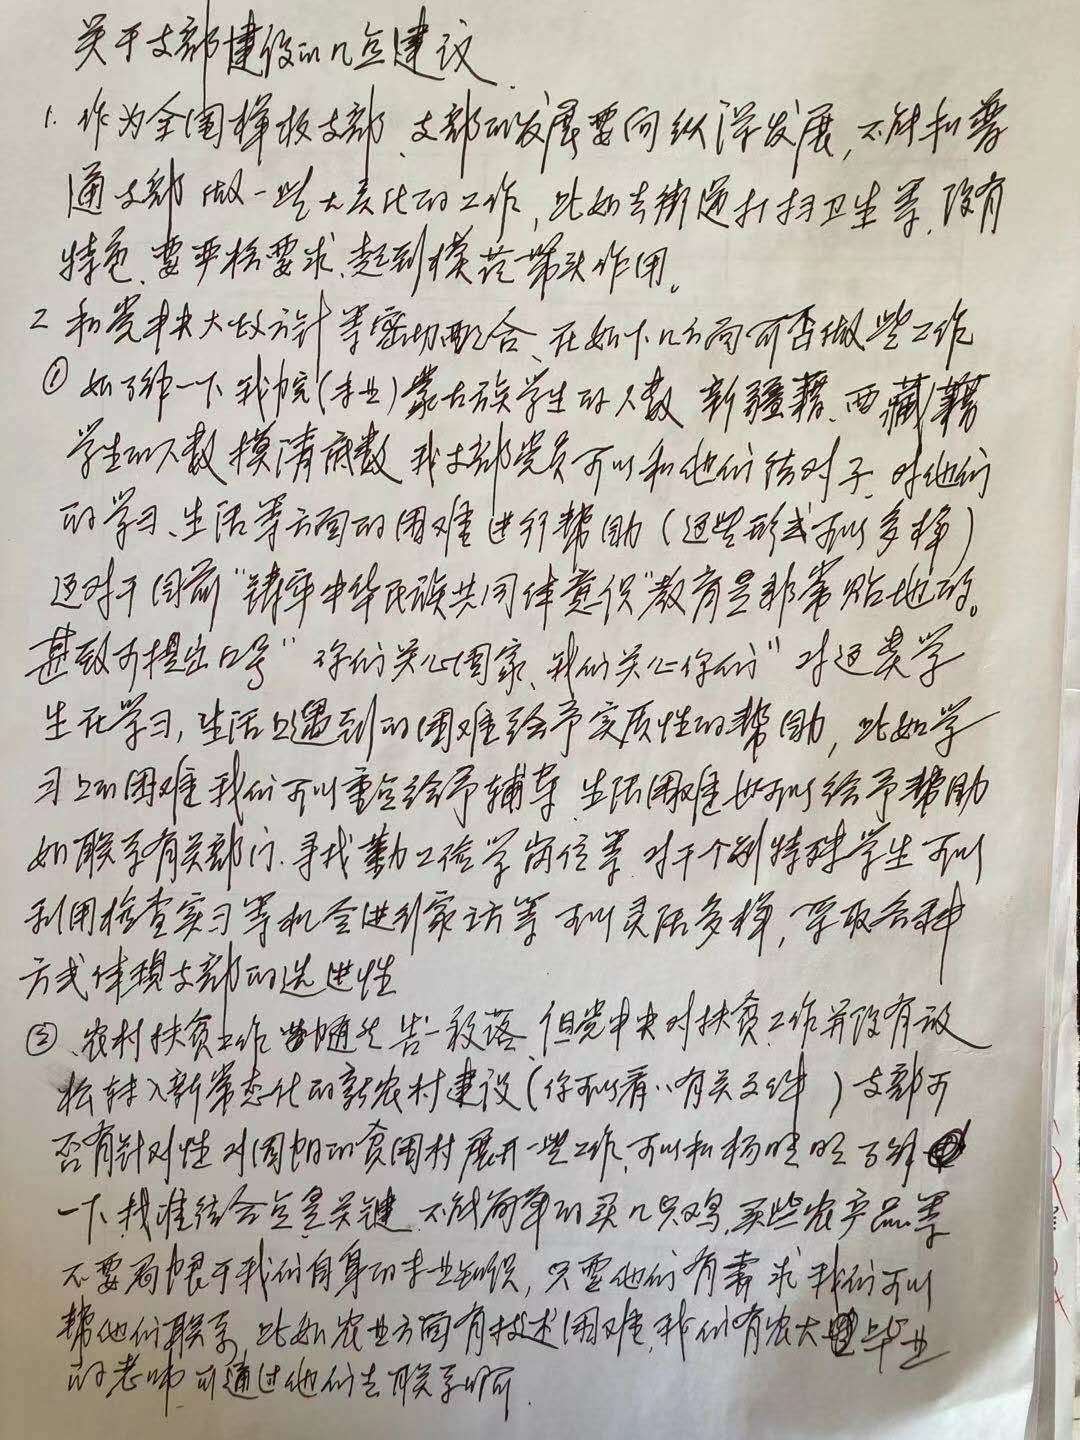 关于支部建设的几点建议
1. 作为全国样板支部、支部的发展要向纵深发展,不能和普
通支部做一些大众化的工作,比如去街道打扫卫生等,没有
特色、要严格要求、起到模范带头作用。
2 和党中央大政方针等密切配合、在如下几方面可否做些工作
① 如了解一下我院(专业)蒙古族学生的人数 新疆籍、西藏籍
学生的人数 摸清底数 我支部党员可以和他们结对子、对他们
的学习、生活等方面的困难进行帮助(这些形式可以多样)
这对于目前“铸牢中华民族共同体意识”教育是非常贴地的。
甚致可提出口号“你们关心国家、我们关心你们”对这类学
生在学习,生活上遇到的困难给予实质性的帮助,比如学
习上的困难我们可以重点给予辅导、生活困难也可以给予帮助
如联系有关部门、寻找勤工俭学岗位等 对于个别特殊学生可以
利用检查实习等机会进行家访等 可以灵活多样,采取各种
方式体现支部的先进性
② 、农村扶贫工作 随之告一段落、但党中央对扶贫工作并没有放
松转入新常态化的新农村建设(你可以看看有关文件)支部可
否有针对性对周边的贫困村展开一些工作,可以和杨旺旺了解
一下、找准结合点是关键、不能简单的买几只鸡、买些农产品等
不要局限于我们自身的专业知识,只要他们有需求我们可以
帮他们联系,比如农业方面有技术困难,我们有农大毕业
的老师可通过他们去联系嘛可.